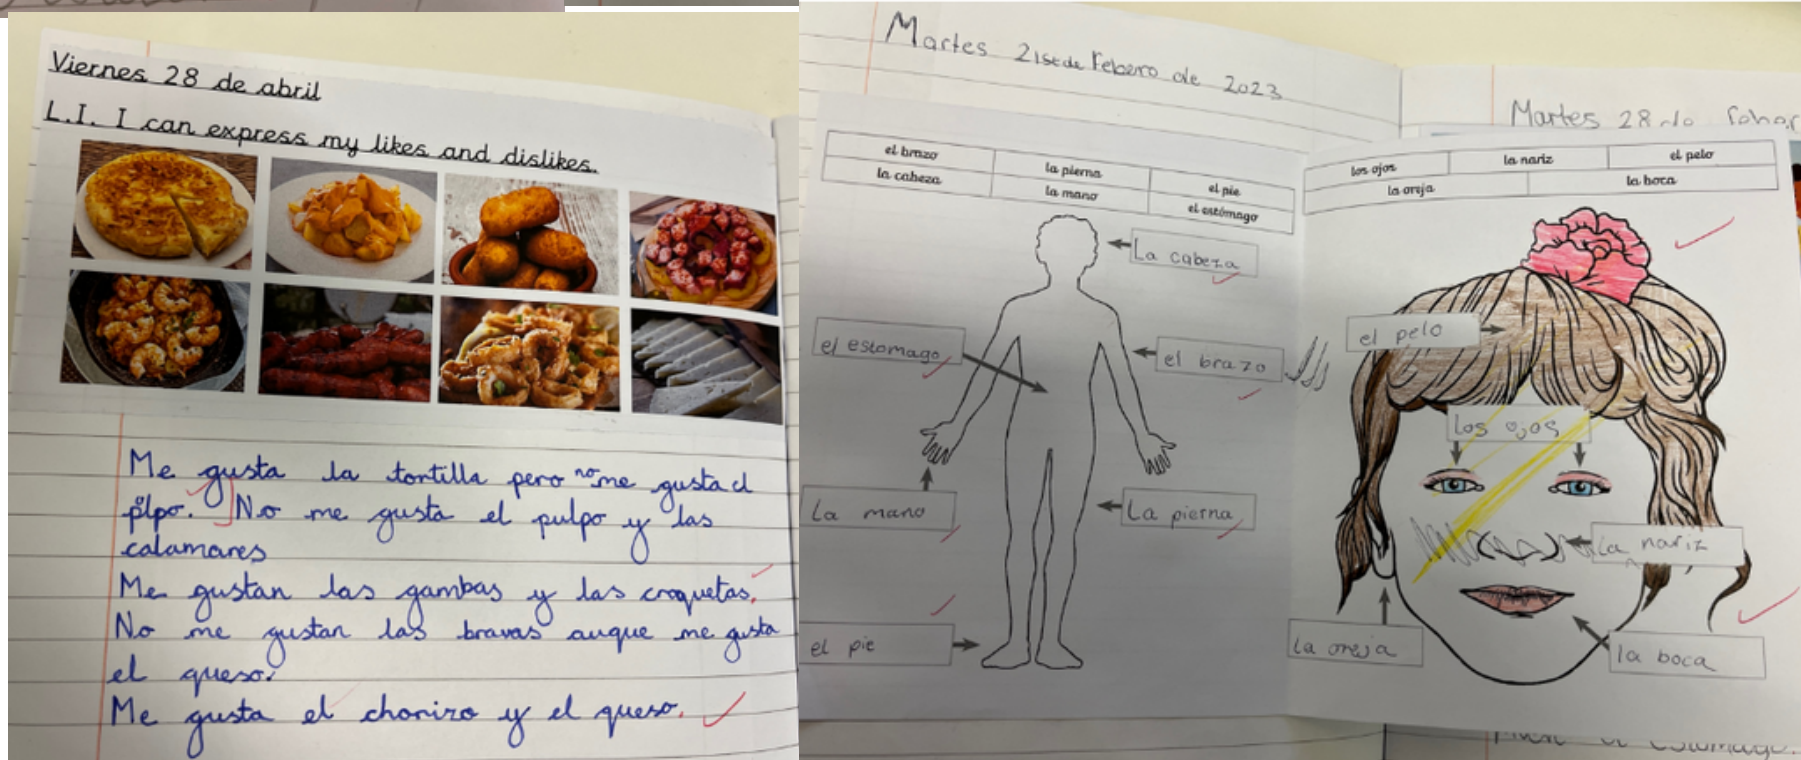 Viernes 28 de abril
L.I. I can express my likes and dislikes.
Me gusta la tortilla pero no me gusta el
polpo. No me gusta el pulpo y las
calamares
Me gustan las gambas y las croquetas.
No me gustan las bravas auque me gusta
el queso.
Me gusta el chorizo y el queso.
Martes 21st de Febero de 2023
el brazo la pierna el pie
la cabeza la mano el estómago
La cabeza
el estomago
el brazo
La mano
La pierna
el pie
Martes 28 de
los ojos la nariz el pelo
la oreja la boca
el pelo
Los ojos
la nariz
la oreja
la boca
el estomago.